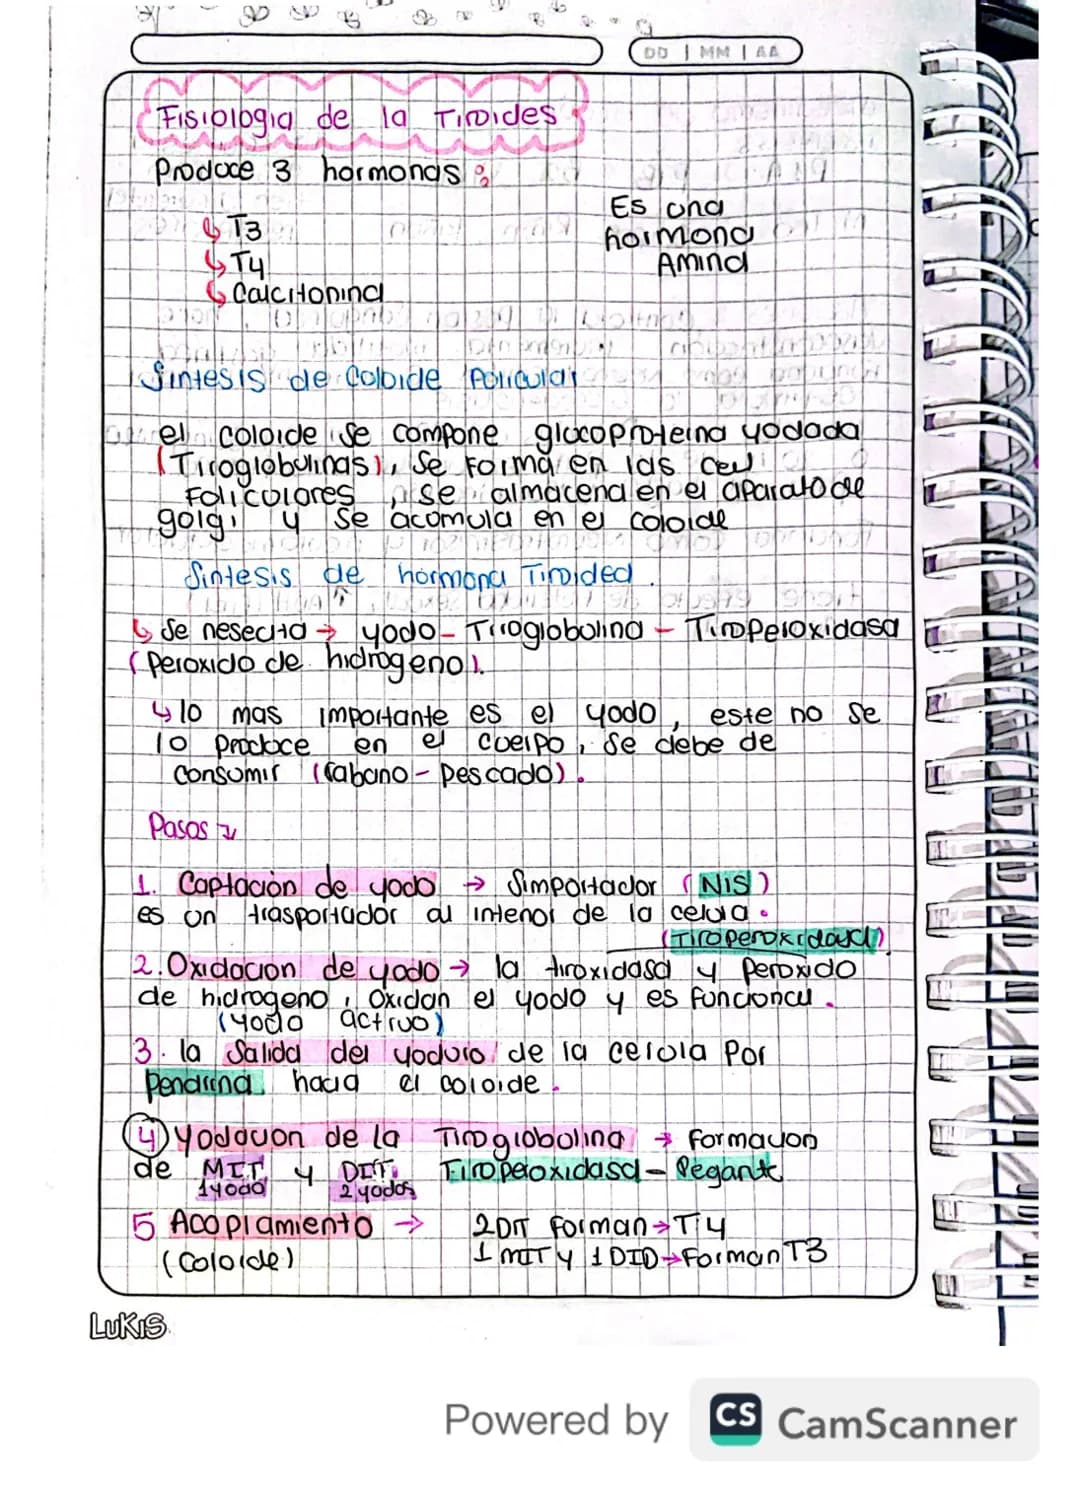 DD | MM | AA
Fisiologia de la Tiroides
Produce 3 hormonas:
T3
T4
Calcitonina
Es una
hormona
Amina
Sintesis de Coloide Folicular
el coloide se compone glucoproteina yodada
(Tiroglobulinas), se Forma en las cel
Foliculores, se almacena en el aparato de
golgi y se acomula en el coloide
Sintesis de hormona Tiroidea.
se nesecita → yodo - Tiroglobulina - Tiroperoxidasa
(Peroxido de hidrogeno).
lo mas importante es el yodo, este no se
lo produce en el cuerpo, se debe de
consumir (rabano - pescado).
Pasos
1. Captación de yodo → Simportador (NIS)
es un trasportador al interior de la celula.
(Tiroperoxidasa)
2. Oxidacion de yodo → la tiroxidasa y peroxido
de hidrogeno, oxidan el yodo y es funcional.
(yodo activo)
3. la Salida del yoduro de la celula Por
Pendrina hacia el coloide.
4) Yodacion de la Tiroglobolina → formacion
de MIT y DIT. Tiroperoxidasa - Pegante
1 yodo 2 yodos
5 Acoplamiento → 2DIT Forman → T4
(Coloide) 1 MIT y 1 DID → Forman T3
LUKIS
Powered by CS CamScanner